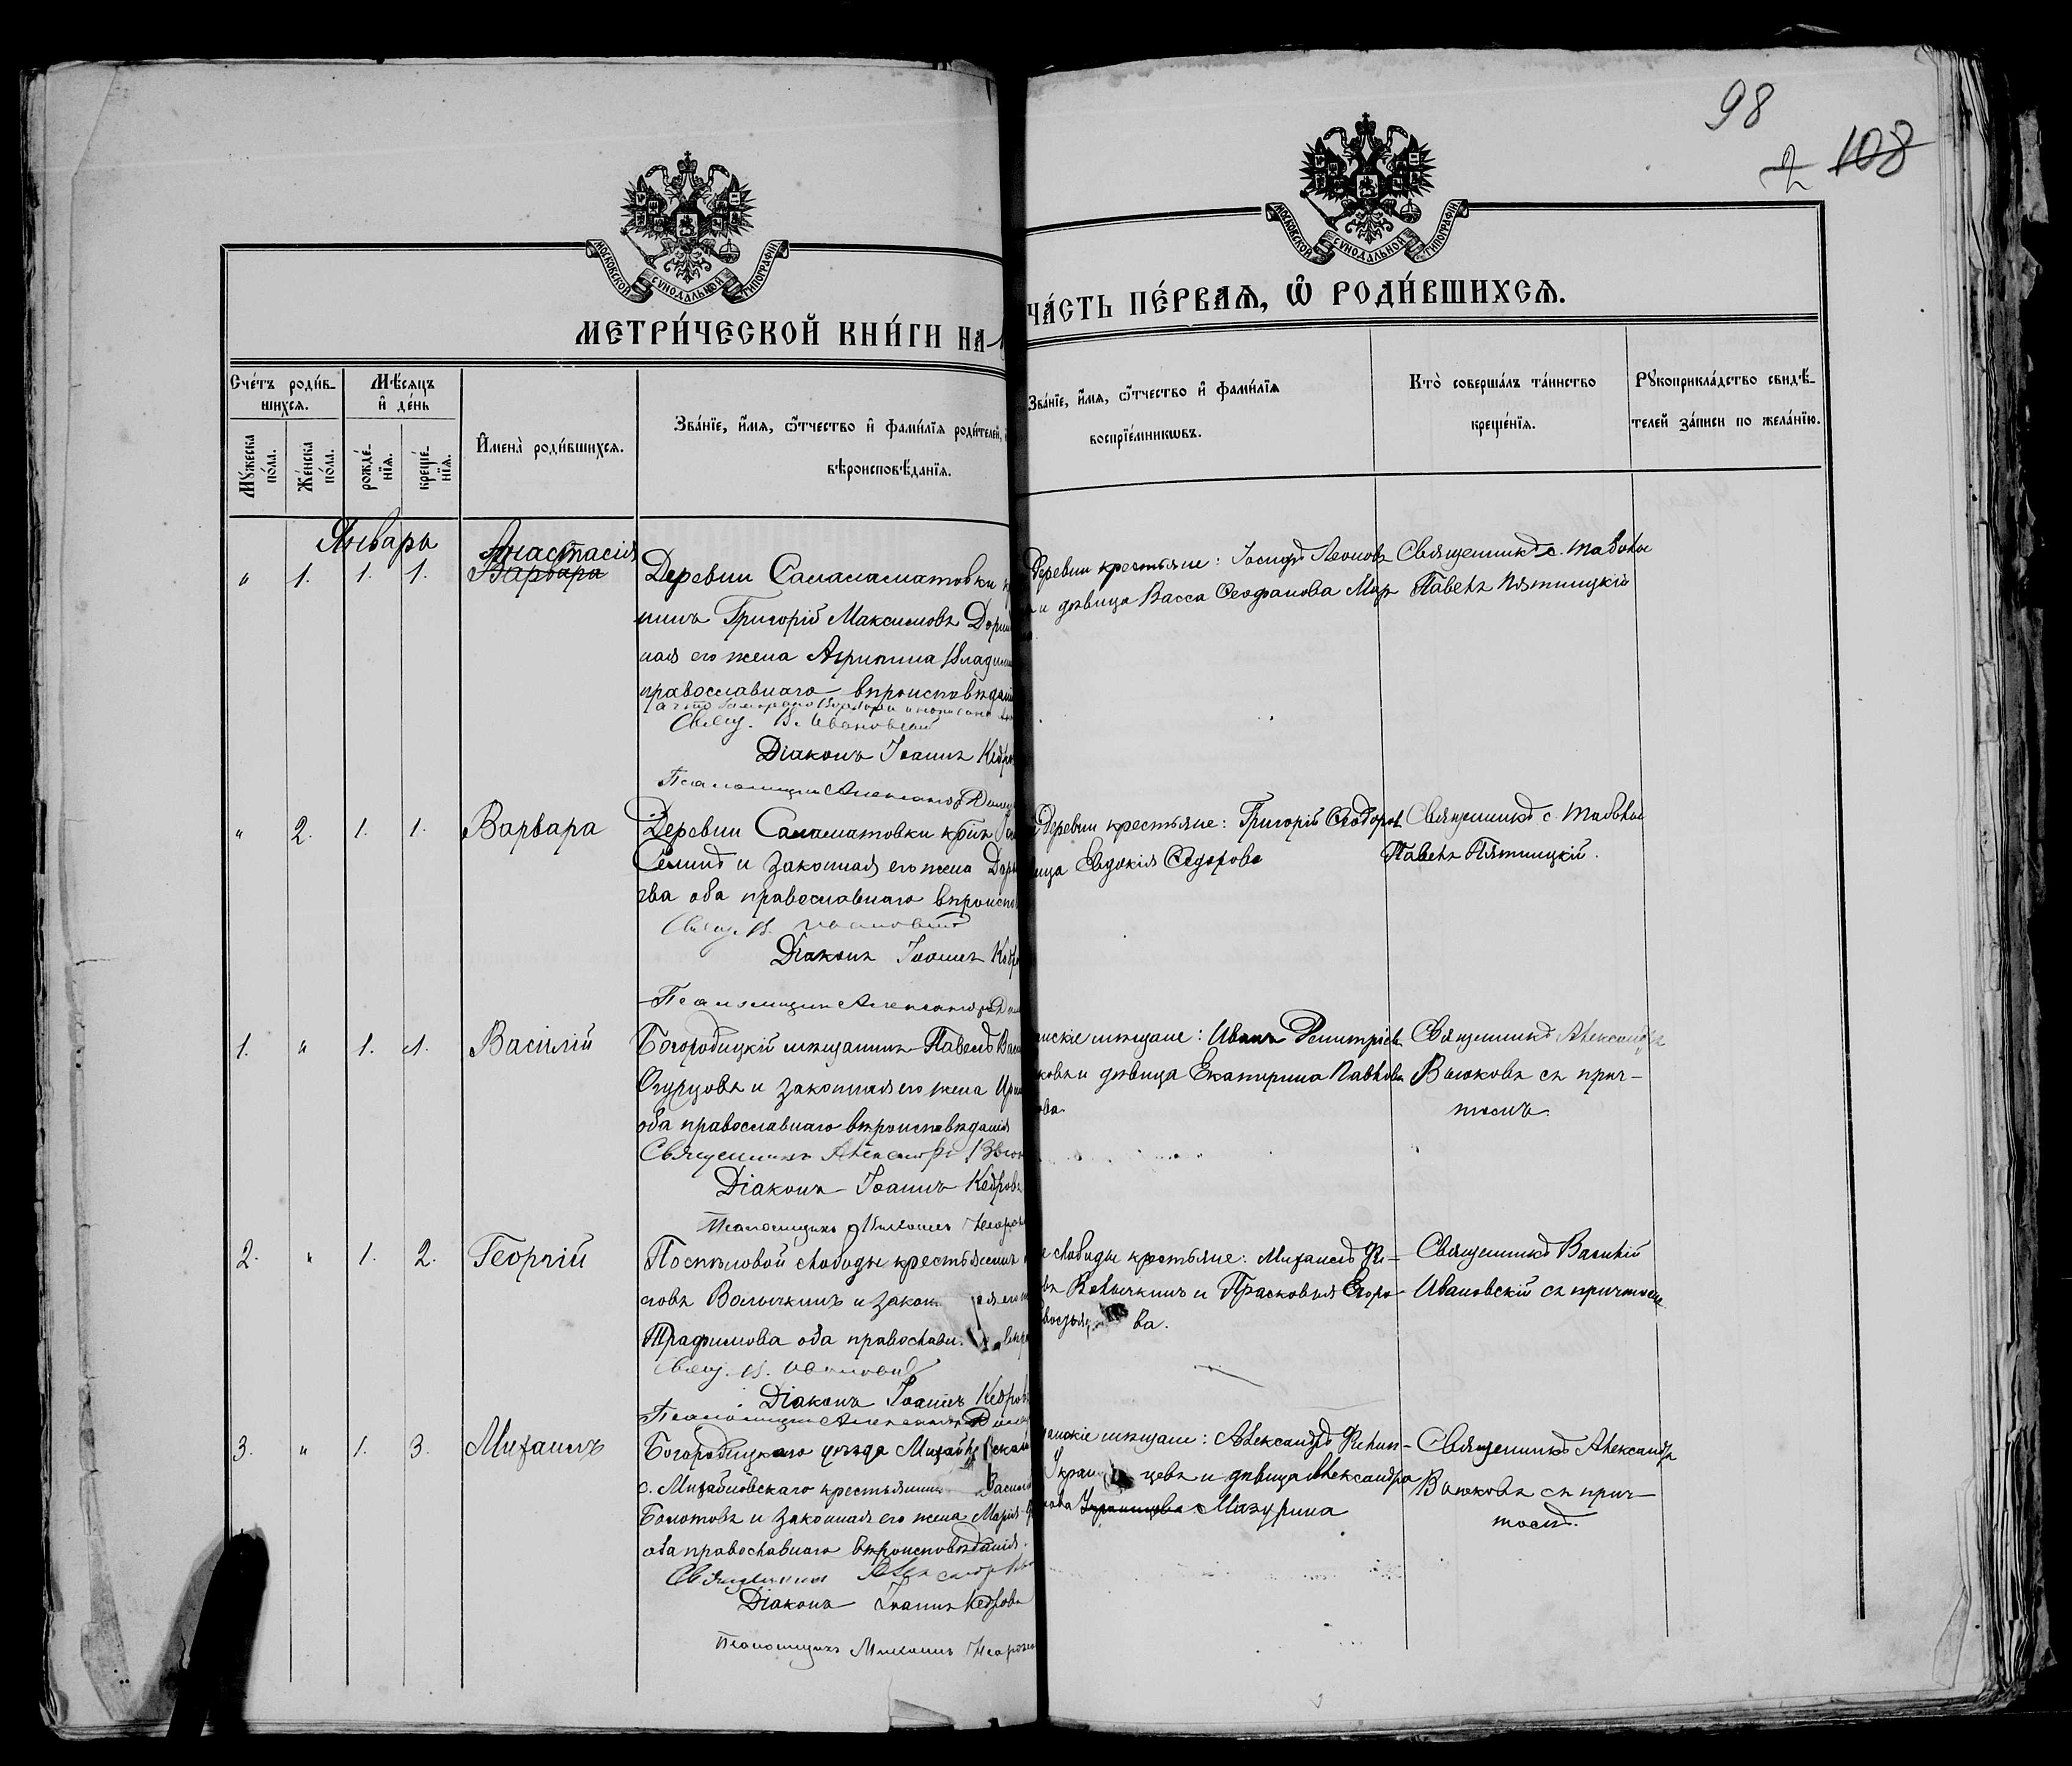 98
2 108
МОСКОВСКОЙ СѴНОДАЛЬНОЙ ТИПОГРАФІИ
МОСКОВСКОЙ СѴНОДАЛЬНОЙ ТИПОГРАФІИ
МЕТРИ́ЧЕСКОЙ КНИ́ГИ НА
ЧА́СТЬ ПЕ́РВАѦ, Ѿ РОДИ́ВШИХСѦ.
Сче́тъ роди́в-
шихсѧ.
Мꙋ́жеска
по́ла.
Же́нска
по́ла.
Мѣ́сѧцъ
и҆ де́нь
рожде́-
нїѧ.
креще́-
нїѧ.
И҆мена̀ роди́вшихсѧ.
Зва́нїе, и҆́мѧ, ѻ҆́тчество и҆ фами́лїѧ роди́телей,
вѣроисповѣ́данїѧ.
Зва́нїе, и҆́мѧ, ѻ҆́тчество и҆ фами́лїѧ
воспрїе́мникѡвъ.
Кто̀ соверша́лъ та́инство
креще́нїѧ.
Рꙋкоприкла́дство свидѣ́-
телей за́писи по жела́нїю.
Январь
Анастасія
" 1. 1. 1. Варвара
Деревни Саламатовки
нинъ Григорій Максимовъ
ная его жена Агрипина Влади
православнаго вѣроисповѣдан
Свящ. В. Ивановскій
Діаконъ Іоаннъ Кедро
Псаломщикъ Александръ
деревни крестьяне: Іосифъ Леоновъ
и дѣвица Васса Ѳеофанова Мар
Священникъ с.
Павелъ Пятницкій
" 2. 1. 1. Варвара
Деревни Саламатовки
и законная его жена Дар
ова оба православнаго вѣроиспо
Свящ. В. Ивановскій
Діаконъ Іоаннъ Кедр
Псаломщикъ Александръ
деревни крестьяне: Григорій Ѳеодоровъ
ица Евдокія Ѳедорова
Священникъ с.
Павелъ Пятницкій.
1. " 1. 1. Василій
Богородицкій мѣщанинъ Павелъ Вас
Огурцовъ и законная его жена Ири
оба православнаго вѣроисповѣданія
Священникъ Александръ
Діаконъ Іоаннъ Кедровъ
Псаломщикъ
нскіе мѣщане: Иванъ Димитріевъ
ковъ и дѣвица Екатерина Павлова
ова
Священникъ Александръ
Вьюковъ съ прич-
томъ.
2. " 1. 2. Георгій
слободы крестьянинъ
ловъ Волынкинъ и закон ая его
Трафимова оба православи
Свящ. В. Ивановскій
Діаконъ Іоаннъ Кедровъ
Псаломщикъ Александръ
слободы крестьяне: Михаилъ Ки-
Волынкинъ и Прасковья Егоро-
ва.
Священникъ Василій
Ивановскій съ причтомъ
3. " 1. 3. Михаилъ
Богородицкаго уѣзда Михайл ской
с. Михайловскаго крестьянинъ Васил
Болотовъ и законная его жена Марія
оба православнаго вѣроисповѣданія.
Священникъ Александръ
Діаконъ Іоаннъ Кедровъ
Псаломщикъ
мѣщане: Александръ
Украи цевъ и дѣвица Александра
нова Украинцева Мазурина
Священникъ Александръ
Вьюковъ съ прич-
томъ.